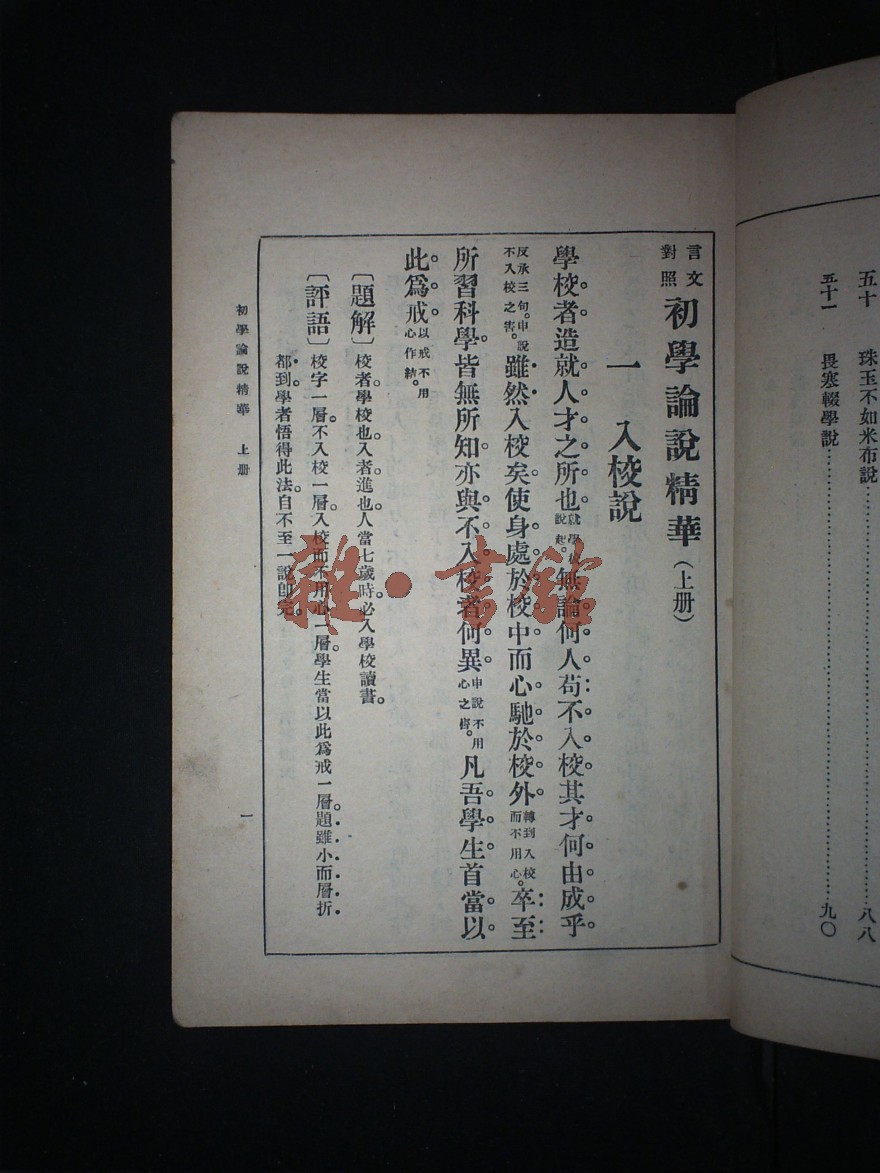 五十　珠玉不如米布說……八八
五十一　畏寒輟學說……九〇
言文對照 初學論說精華(上册)
一　入校說
學校者造就人才之所也。就學校說起。無論何人苟不入校其才何由成乎。
反承三句。申說不入校之害。雖然入校矣。使身處於校中而心馳於校外。轉到入校而不用心。卒至
所習科學。皆無所知。亦與不入校者何異。申說不用心之害。凡吾學生首當以
此爲戒。以戒不用心作結。
〔題解〕校者。學校也。入者。進也。人當七歲時。必入學校讀書。
〔評語〕校字一層。不入校一層。入校而不用心一層。學生當以此爲戒一層。題雖小而層折
都到。學者悟得此法。自不至一說卽完。
初學論說精華　上册
一
雜·書館